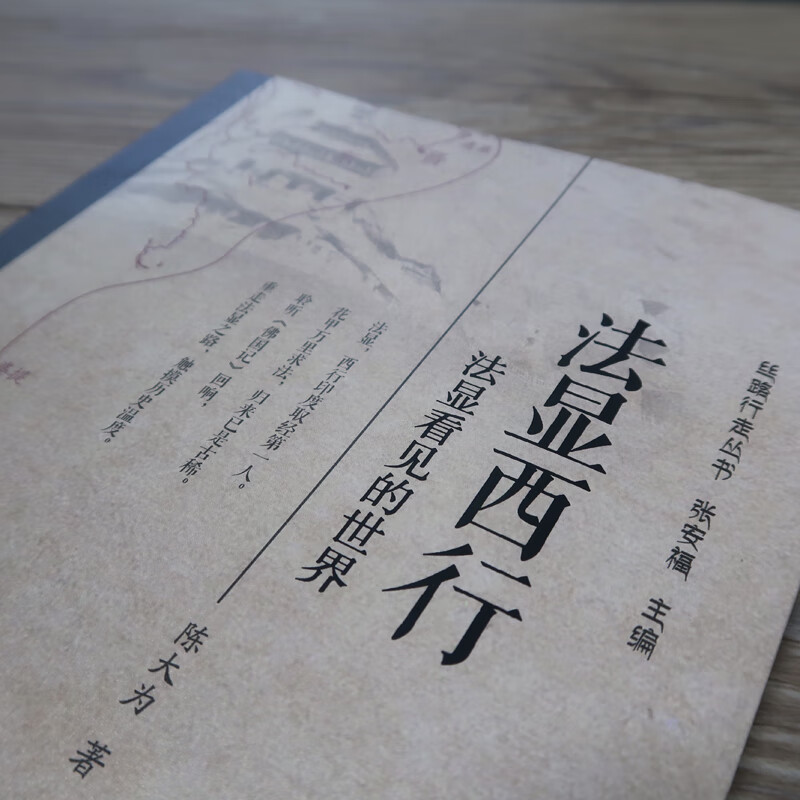 丝路行走丛书 张安福 主编
法显西行
法显看见的世界
法显，西行印度取经第一人。
花甲万里求法，归来已是古稀。
聆听《佛国记》回响，
重走法显之路，触摸历史温度。
陈大为 著